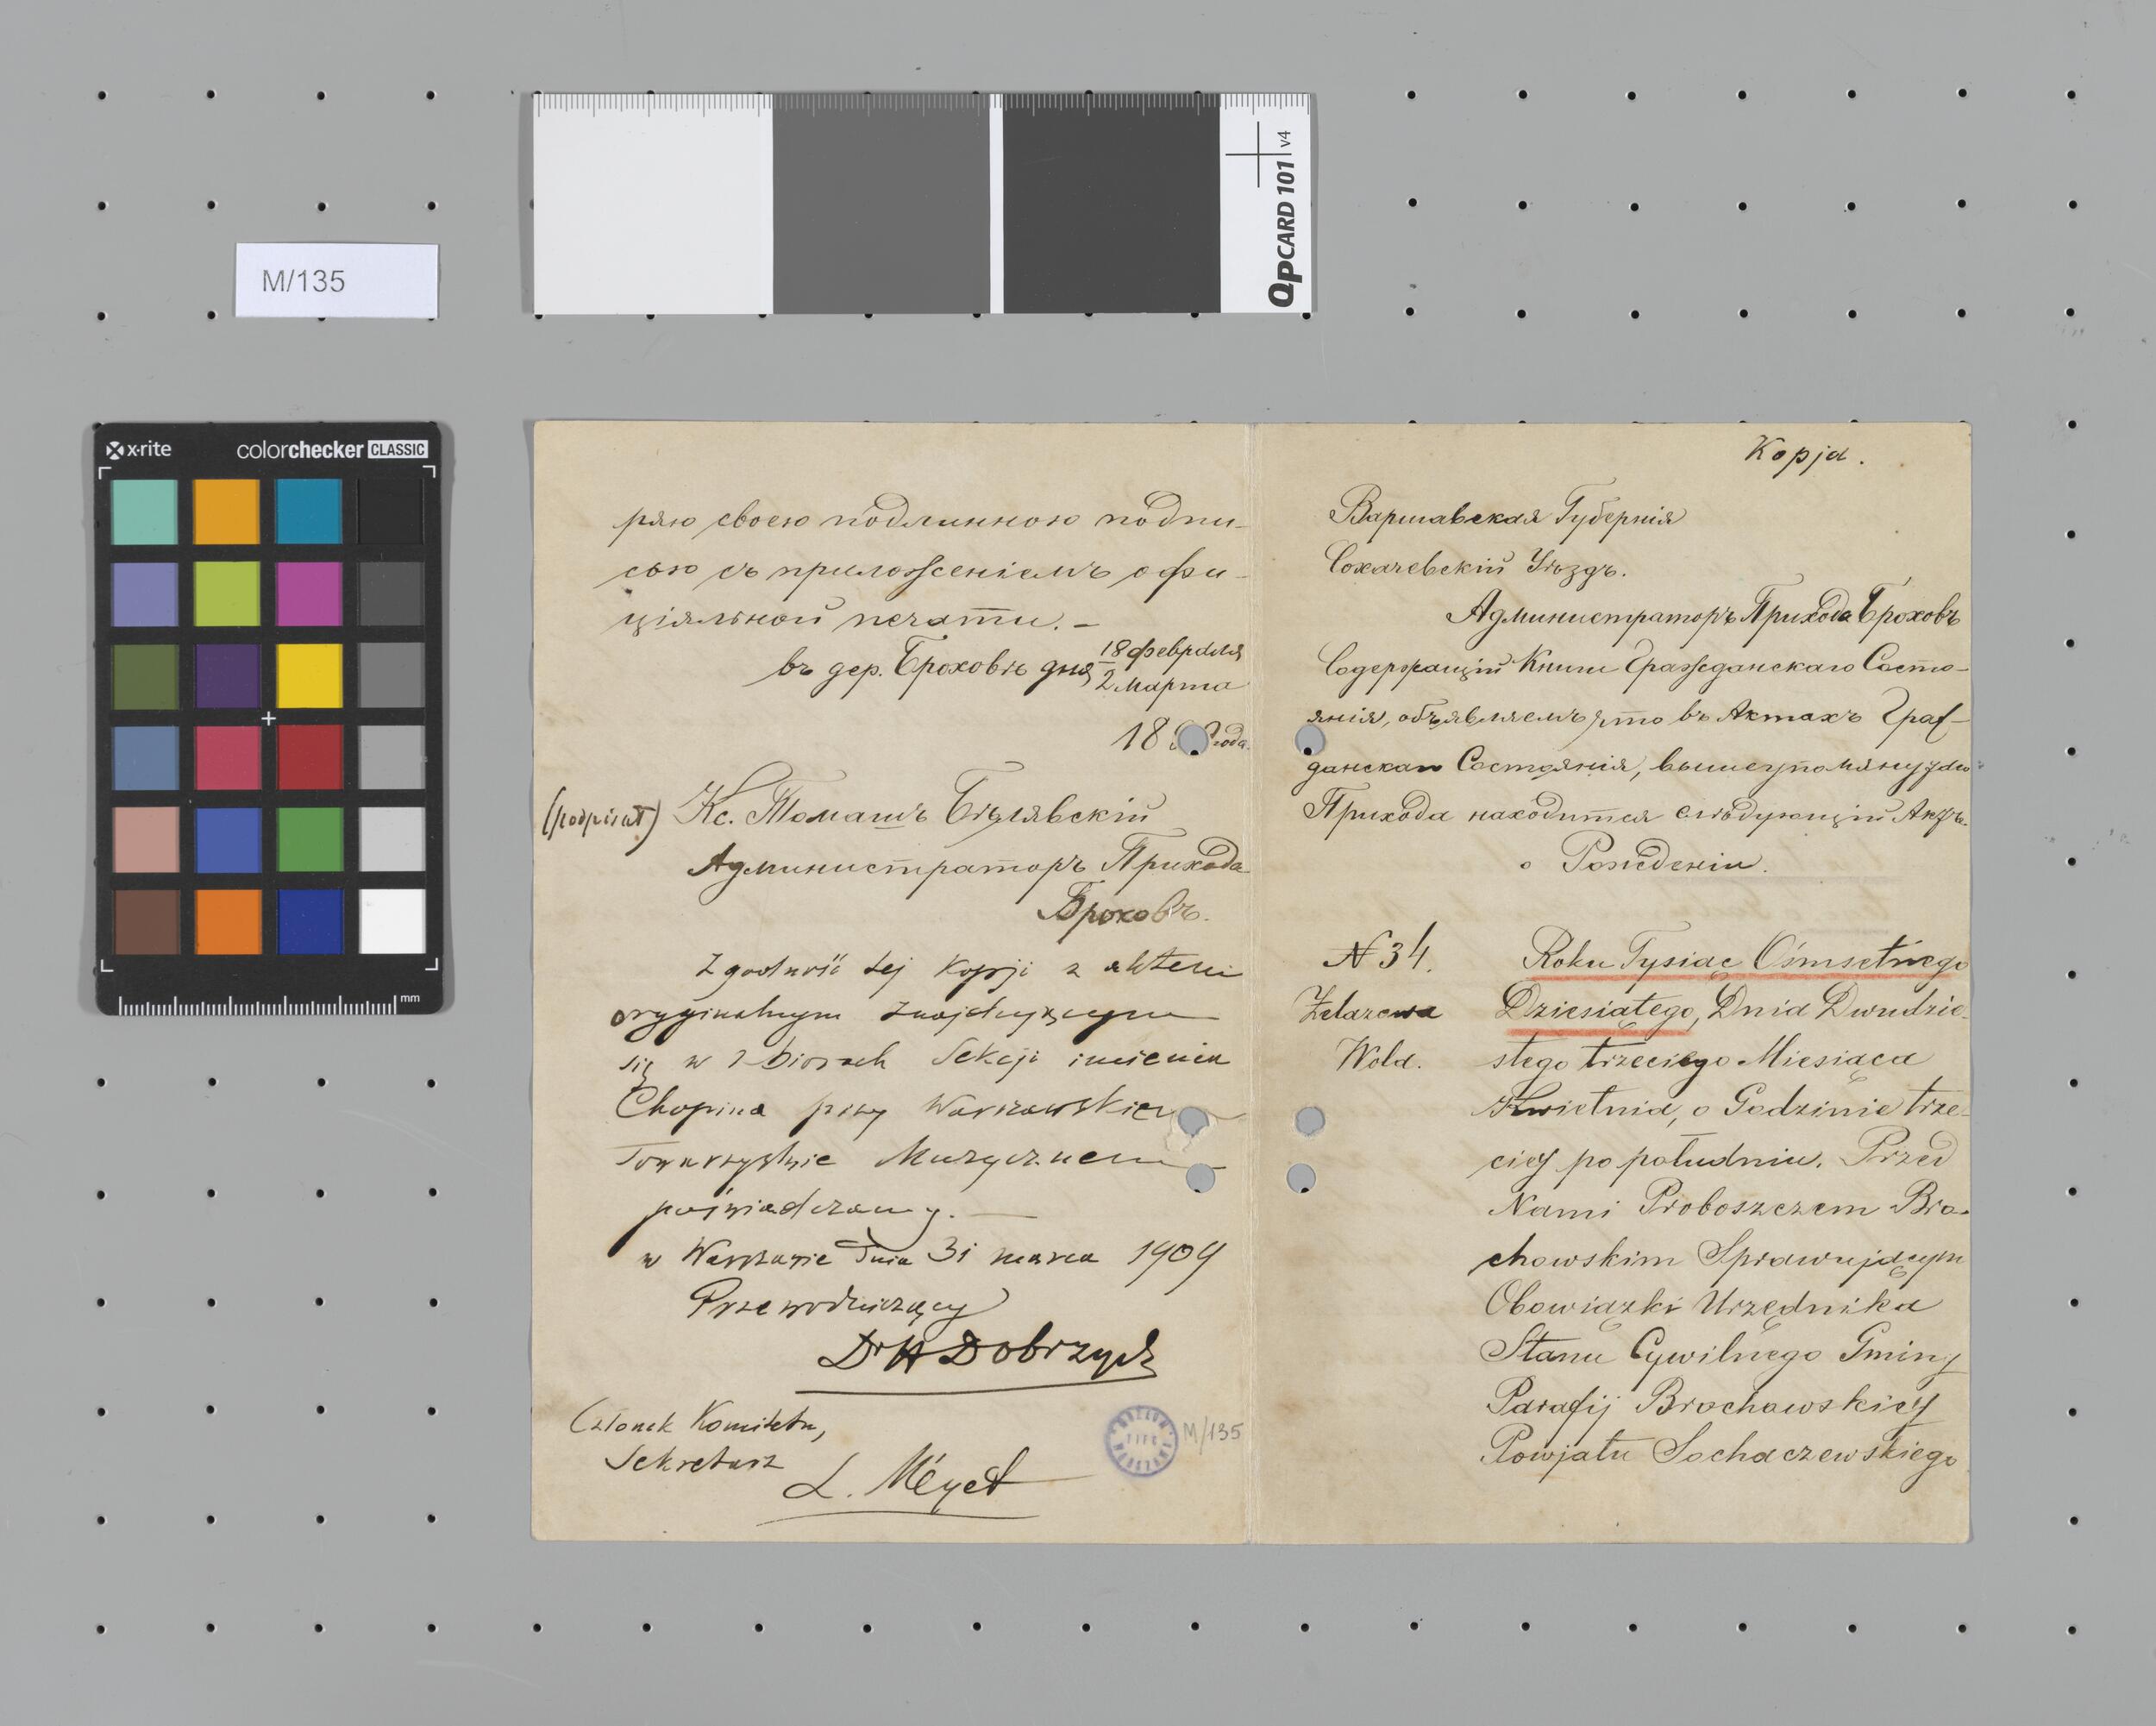 M/135
QPCARD 101 v4
x·rite
colorchecker CLASSIC
mm
ряю своею подлинною подпи-
сью съ приложеніемъ офи-
ціяльной печати. -
въ дер. Броховѣ дня 18 февраля
2 Марта
18
года.
(podpisał) Кс. Томашъ Бѣлявскій
Администраторъ Прихода
Броховъ.
Zgodność tej kopji z aktem
oryginalnym znajdującym
się w zbiorach Sekcji imienia
Chopina przy Warszawskiem
Towarzystwie Muzycznem
poświadczamy. —
w Warszawie dnia 31 marca 1909
Przewodniczący
Dr H Dobrzycki
Członek Komitetu,
Sekretarz
L. Méyet
M/135
Kopja.
Варшавская Губернія
Сохачевскій Уѣздъ.
Администраторъ Прихода Броховъ
Содержащій Книги Гражданскаго Состо-
янія, объявляемъ что въ Актахъ Граж-
данскаго Состоянія, вышеупомянутаго
Прихода находится слѣдующій Актъ.
о Рожденіи.
N 34.
Żelazowa
Wola.
Roku Tysiąc Ośmsetnego
Dziesiątego, Dnia Dwudzie-
stego trzeciego Miesiąca
Kwietnia, o Godzinie trze-
ciey po południu. Przed
Nami Proboszczem Bro-
chowskim Sprawującym
Obowiązki Urzędnika
Stanu Cywilnego Gminy
Parafij Brochowskiey
Powjatu Sochaczewskiego